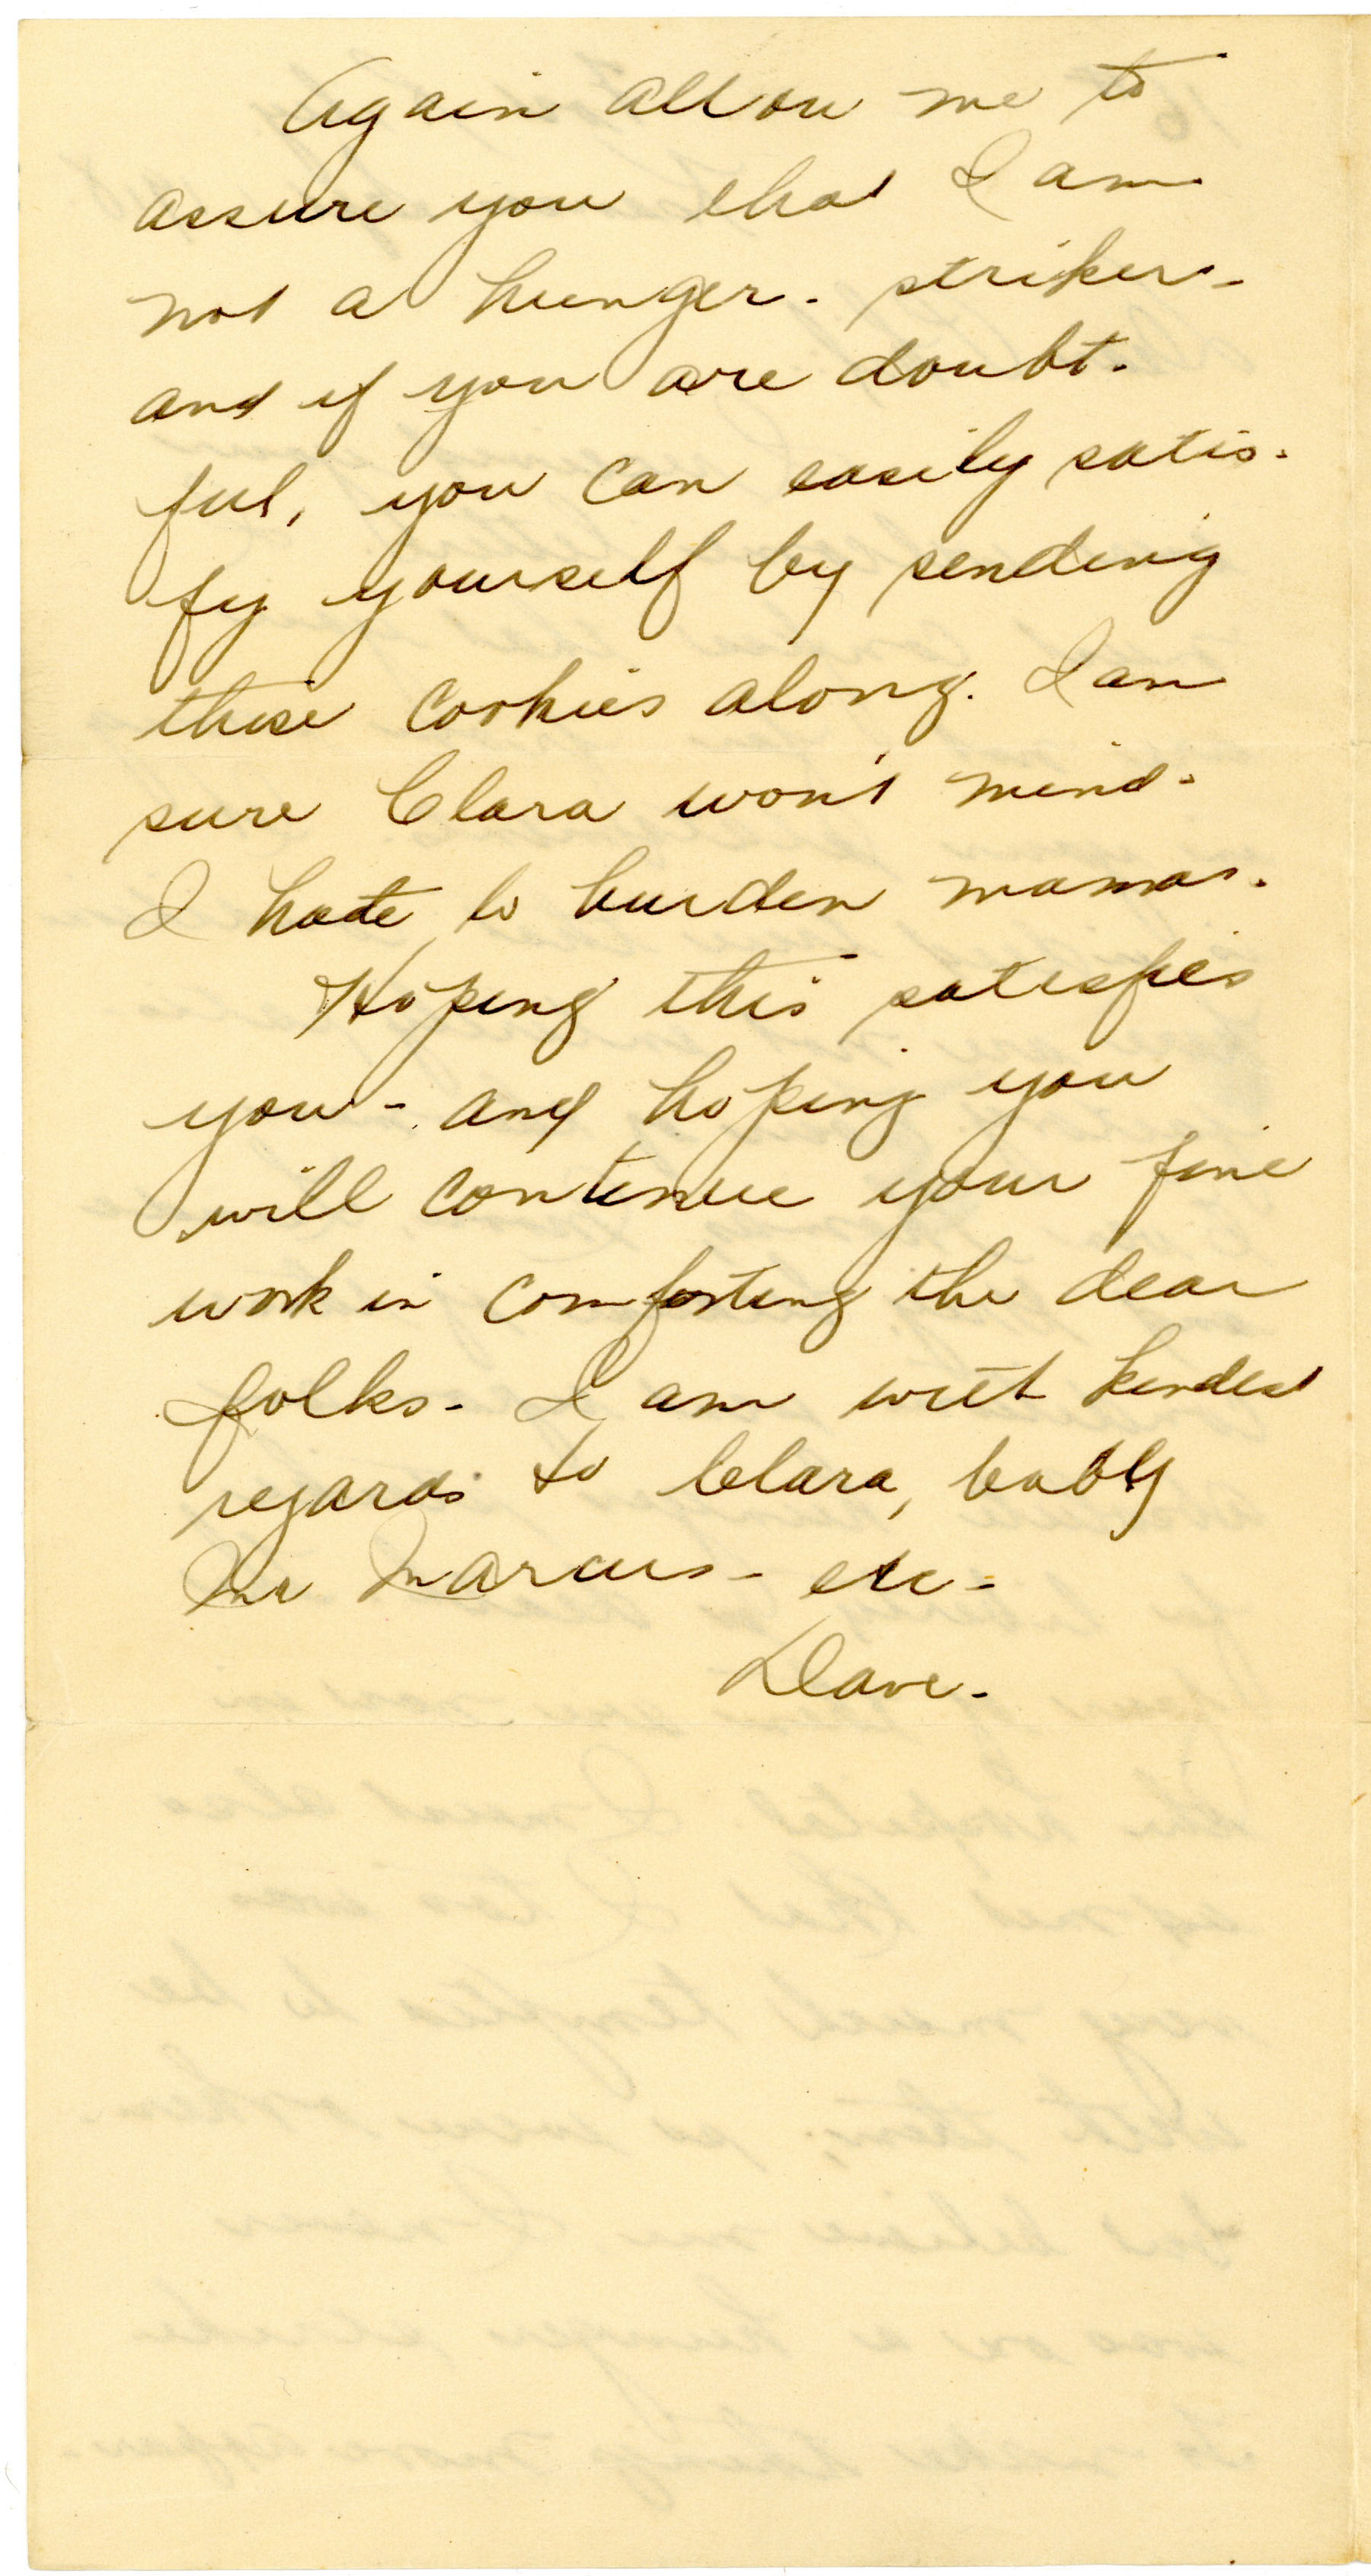 Again allow me to
assure you that I am
not a hunger-striker-
and if you are doubt-
ful, you can easily satis-
fy yourself by sending
those cookies along. I am
sure Clara won't mind-
I hate to burden mama.
Hoping this satisfies
you - and hoping you
will continue your fine
work in comforting the dear
folks - I am with kindest
regards to Clara, baby
Mr Marcus - etc -
Dave.